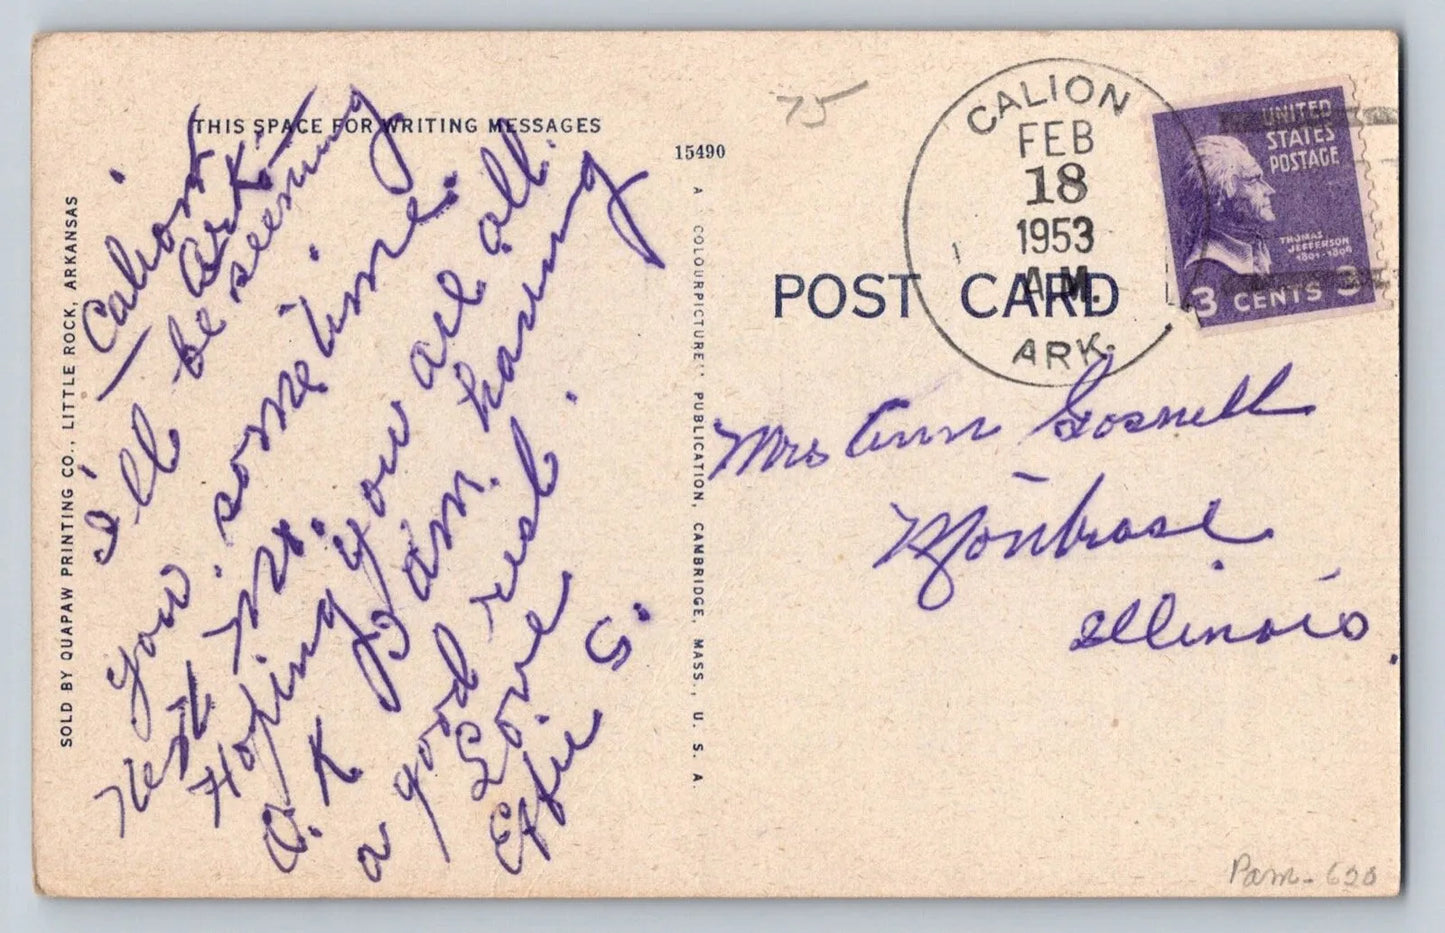 THIS SPACE FOR WRITING MESSAGES
Calion
Ark.
I'll be seeming
you sometime.
next mo.
Hoping you are all
O.K I am having
a good rest.
Love
Effie S.
SOLD BY QUAPAW PRINTING CO., LITTLE ROCK, ARKANSAS
15490
A "COLOURPICTURE" PUBLICATION, CAMBRIDGE, MASS., U. S. A.
75
CALION
FEB
18
1953
A.M.
ARK.
UNITED
STATES
POSTAGE
THOMAS
JEFFERSON
1801-1809
3 CENTS 3
POST CARD
Mrs Ann Gosnell
Montrose
Illinois.
Pam-620